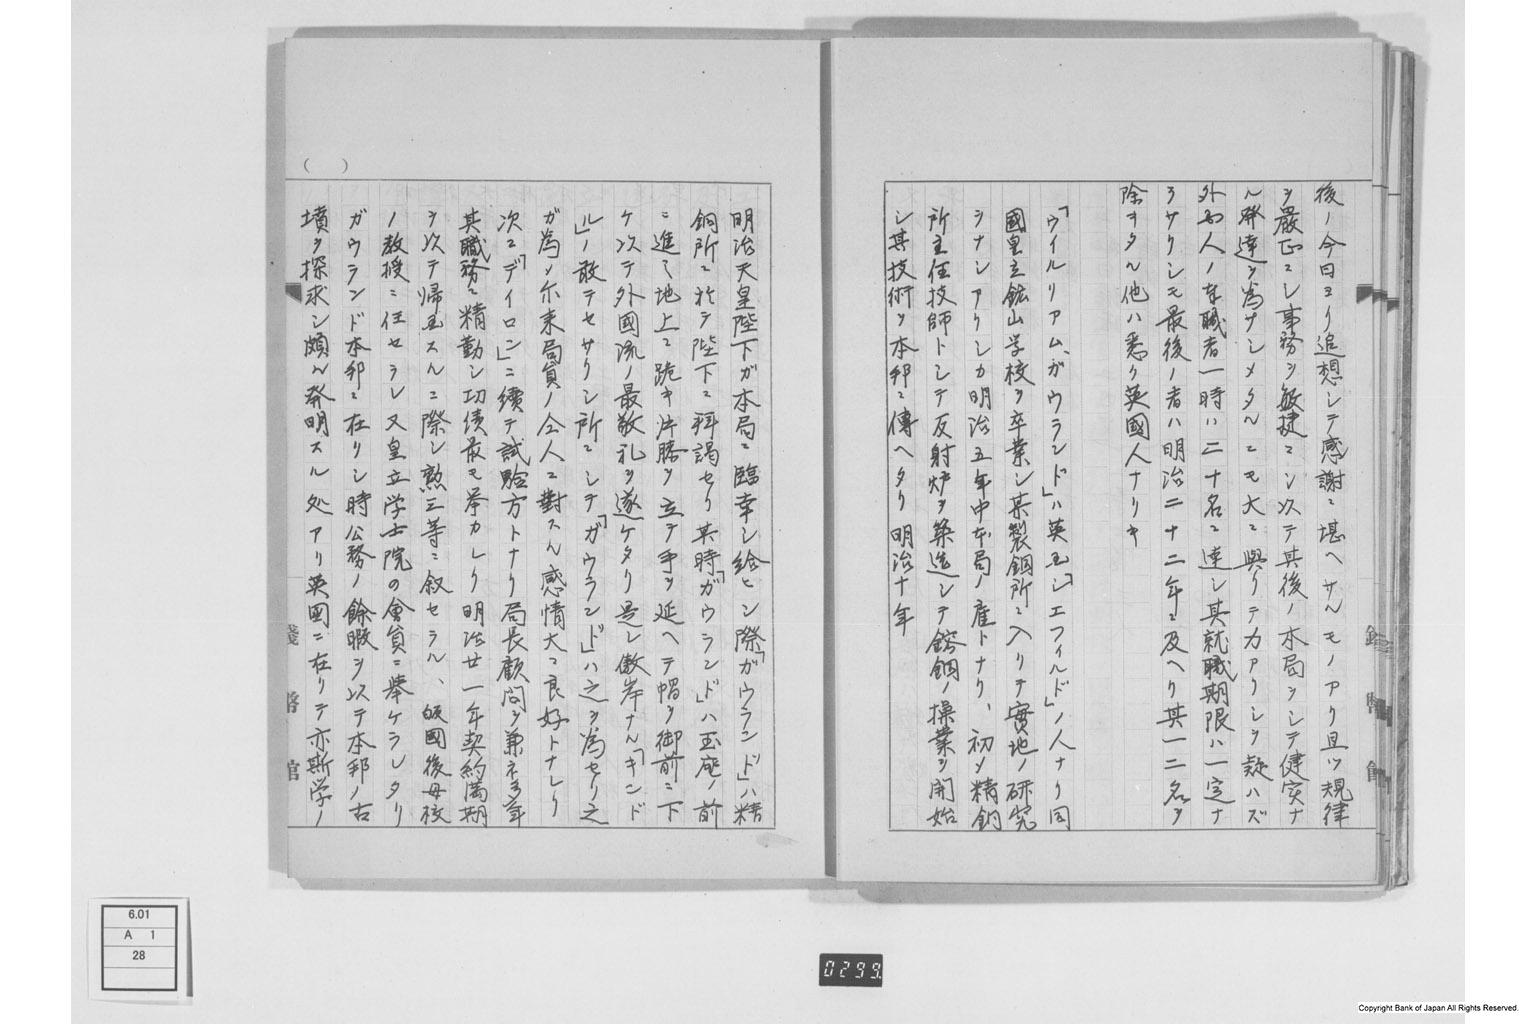 後ノ今日ヨリ追想シテ感謝ニ堪ヘサルモノアリ且ツ規律
ヲ嚴正ニシ事務ヲ敏捷ニシ以テ其後ノ本局ヲシテ健実ナ
ル発達ヲ為サシメタルニモ大ニ與リテ力アリシヲ疑ハズ
外国人ノ在職者一時ハ二十名ニ達シ其就職期限ハ一定ナ
ラサリシモ最後ノ者ハ明治二十二年ニ及ヘリ其一二名ヲ
除キタル他ハ悉ク英國人ナリキ
「ウイルリアム、ガウランド」ハ英国「シエフィルド」ノ人ナリ同
國皇立鉱山学校ヲ卒業シ某製銅所ニ入リテ實地ノ研究
ヲナシアリシカ明治五年中本局ノ雇トナリ、初メ精銅
所主任技師トシテ反射炉ヲ築造シテ鎔銅ノ操業ヲ開始
シ其技術ヲ本邦ニ傳ヘタリ明治十年
明治天皇陛下ガ本局ニ臨幸シ給ヒシ際「ガウランド」ハ精
銅所ニ於テ陛下ニ拜謁セリ其時「ガウランド」ハ玉座ノ前
ニ進ミ地上ニ跪キ片膝ヲ立テ手ヲ延ヘテ帽ヲ御前ニ下
ケ以テ外國流ノ最敬礼ヲ遂ケタリ是レ傲岸ナル「キンド
ル」ノ敢テセサリシ所ニシテ「ガウランド」ハ之ヲ為セリ之
ガ為メ尓来局員ノ仝人ニ對スル感情大ニ良好トナレリ
次ニ「デイロン」ニ續テ試驗方トナリ局長顧問ヲ兼ネ多年
其職務ニ精勤シ功績最モ挙カレリ明治廿一年契約満期
ヲ以テ帰国スルニ際シ勲三等ニ叙セラル、皈國後母校
ノ教授ニ任セラレ又皇立学士院の會員ニ擧ケラレタリ
ガウランド本邦ニ在リシ時公務ノ餘暇ヲ以テ本邦ノ古
墳ヲ探求シ頗ル発明スル処アリ英国ニ在リテ亦斯学ノ
6.01
A 1
28
0299
Copyright Bank of Japan All Rights Reserved.